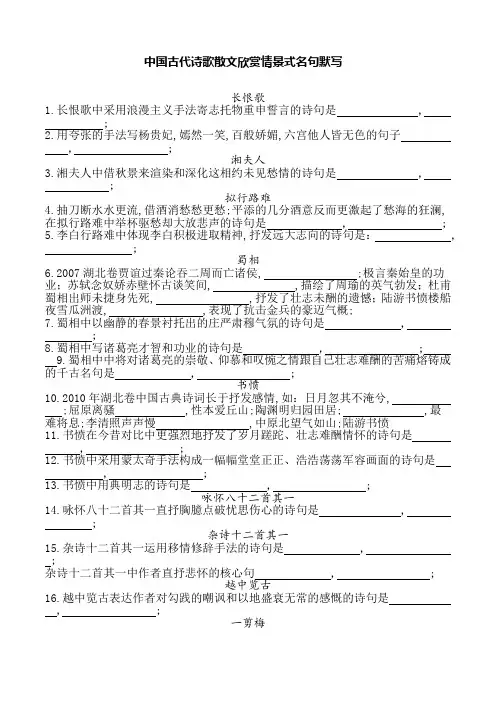 中国古代诗歌散文欣赏情景式名句默写
长恨歌
1.长恨歌中采用浪漫主义手法寄志托物重申誓言的诗句是 ,
;
2.用夸张的手法写杨贵妃,嫣然一笑,百般娇媚,六宫他人皆无色的句子
, ;
湘夫人
3.湘夫人中借秋景来渲染和深化这相约未见愁情的诗句是 ,
;
拟行路难
4.抽刀断水水更流,借酒消愁愁更愁;平添的几分酒意反而更激起了愁海的狂澜,
在拟行路难中举杯驱愁却大放悲声的诗句是 , ;
5.李白行路难中体现李白积极进取精神,抒发远大志向的诗句是: ,
;
蜀相
6.2007湖北卷贾谊过秦论吞二周而亡诸侯, ;极言秦始皇的功
业;苏轼念奴娇赤壁怀古谈笑间, ,描绘了周瑜的英气勃发;杜甫
蜀相出师未捷身先死, ,抒发了壮志未酬的遗憾;陆游书愤楼船
夜雪瓜洲渡, ,表现了抗击金兵的豪迈气概;
7.蜀相中以幽静的春景衬托出的庄严肃穆气氛的诗句是 ,
;
8.蜀相中写诸葛亮才智和功业的诗句是 , ;
9.蜀相中中将对诸葛亮的崇敬、仰慕和叹惋之情跟自己壮志难酬的苦痛熔铸成
的千古名句是 , ;
书愤
10.2010年湖北卷中国古典诗词长于抒发感情,如:日月忽其不淹兮,
;屈原离骚 ,性本爱丘山;陶渊明归园田居; ,最
难将息;李清照声声慢 ,中原北望气如山;陆游书愤
11.书愤在今昔对比中更强烈地抒发了岁月蹉跎、壮志难酬情怀的诗句是
, ;
12.书愤中采用蒙太奇手法构成一幅幅堂堂正正、浩浩荡荡军容画面的诗句是
, ;
13.书愤中用典明志的诗句是 , ;
咏怀八十二首其一
14.咏怀八十二首其一直抒胸臆点破忧思伤心的诗句是 ,
;
杂诗十二首其一
15.杂诗十二首其一运用移情修辞手法的诗句是 ,
;
杂诗十二首其一中作者直抒悲怀的核心句 , ;
越中览古
16.越中览古表达作者对勾践的嘲讽和以地盛衰无常的感慨的诗句是
, ;
一剪梅